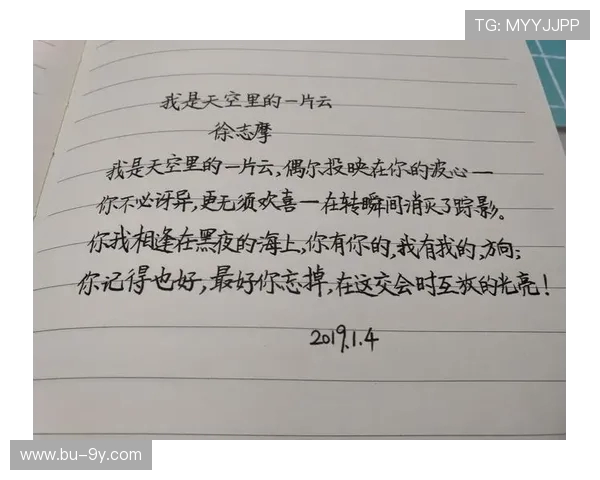 TG: MYYJJPP
我是天空里的一片云
徐志摩
我是天空里的一片云,偶尔投映在你的波心一
你不必讶异,更无须欢喜一在转瞬间消灭了踪影。
你我相逢在黑夜的海上,你有你的,我有我的,方向;
你记得也好,最好你忘掉,在这交会时互放的光亮!
2019.1.4
www.bu-9y.com